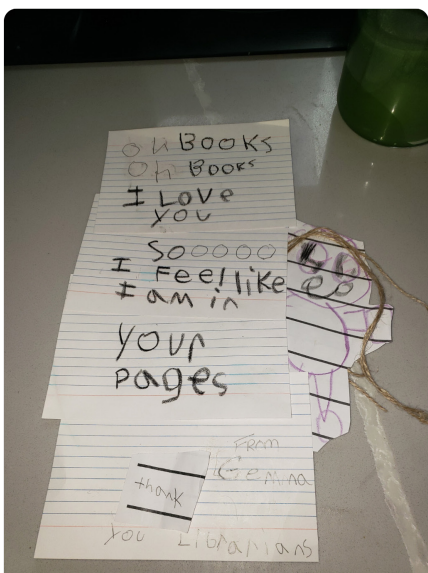 oh BOOKS
Oh BOOKS
I LOVe
YOU
SOOOOO
I Feel like
I am in
your
pages
FROM
Gemma
thank
YOU LIBRARIANS